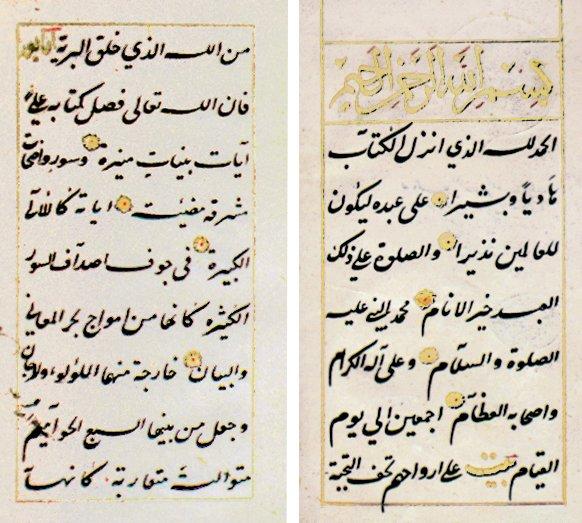 بسم الله الرحمن الرحيم
الحمد لله الذي انزل الكتاب
هادياً وبشيرا على عبده ليكون
للعالمين نذيرا والصلوة على ذلك
العبد خير الانام محمد النبي عليه
الصلوة والسلام وعلى آله الكرام
واصحابه العظام اجمعين الي يوم
القيام على ارواحهم تحف التحية
من الله الذي خلق البرية
فان الله تعالى فصل كتابه على
آيات بينات منيرة وسور واضحات
مشرقة مضيئة اياته كاللآلي
الكبيرة في جوف اصداف السور
الكثيرة كانها من امواج بحر المعاني
والبيان خارجة منها اللؤلؤ
وجعل من بينها السبع الحواميم
متوالية متقاربة كانها